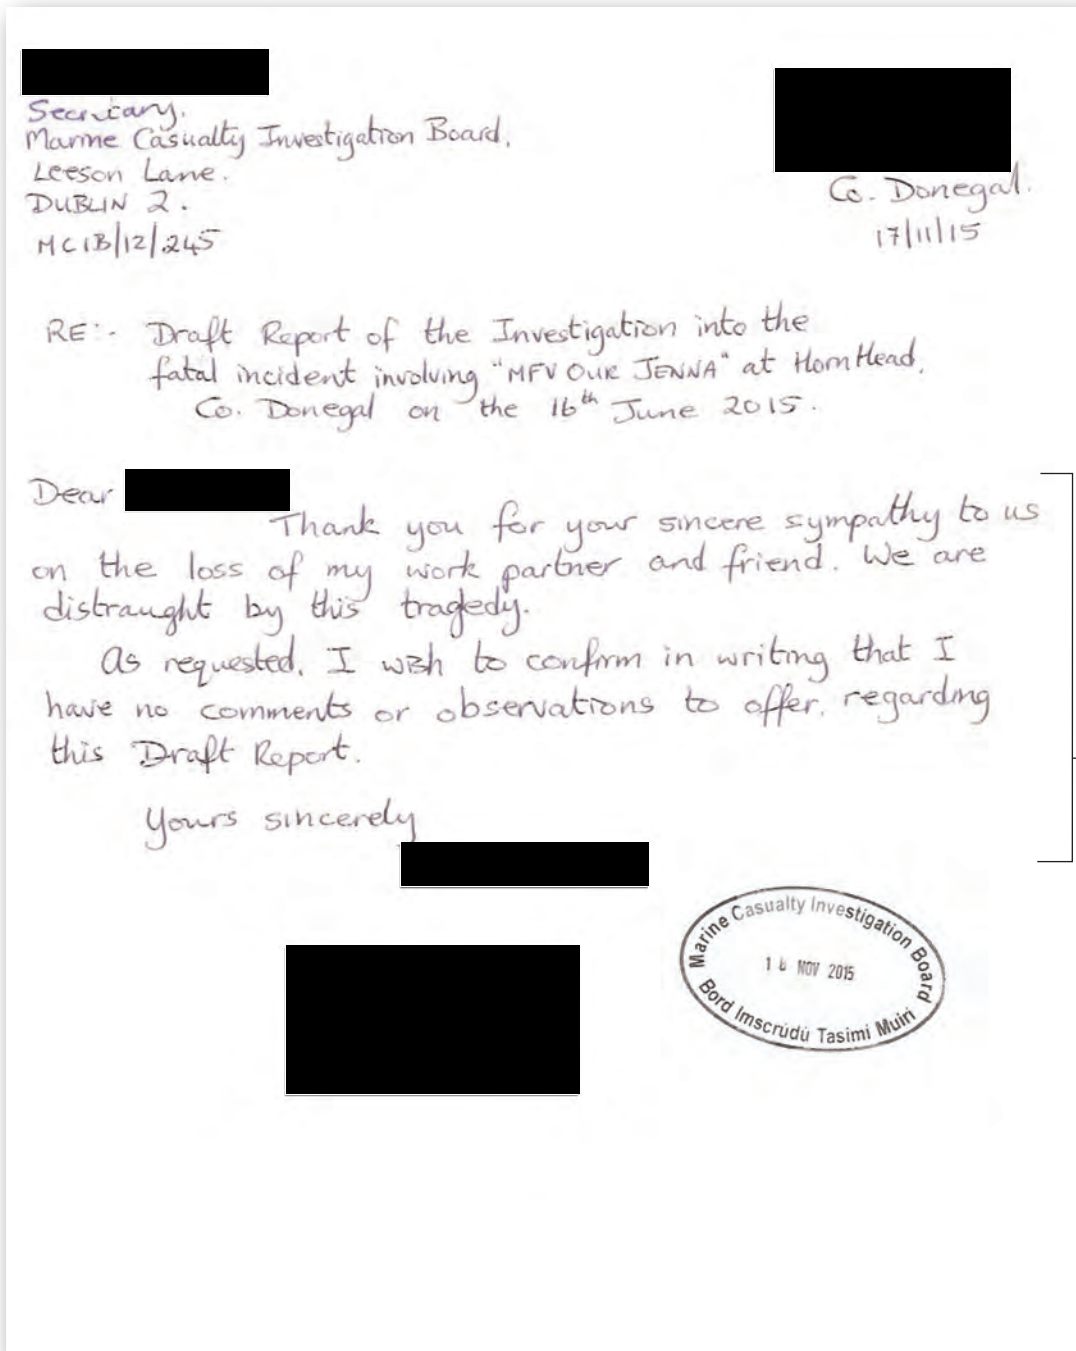 Secretary.
Marine Casualty Investigation Board,
Leeson Lane.
DUBLIN 2.
MCIB/12/245
Co. Donegal.
17/11/15
RE:- Draft Report of the Investigation into the
fatal incident involving "MFV OUR JENNA" at Horn Head,
Co. Donegal on the 16th June 2015.
Dear
Thank you for your sincere sympathy to us
on the loss of my work partner and friend. We are
distraught by this tragedy.
As requested, I wish to confirm in writing that I
have no comments or observations to offer, regarding
this Draft Report.
Yours sincerely
Marine Casualty Investigation Board
NOV 2015
Bord Imscrúdú Taismí Muirí